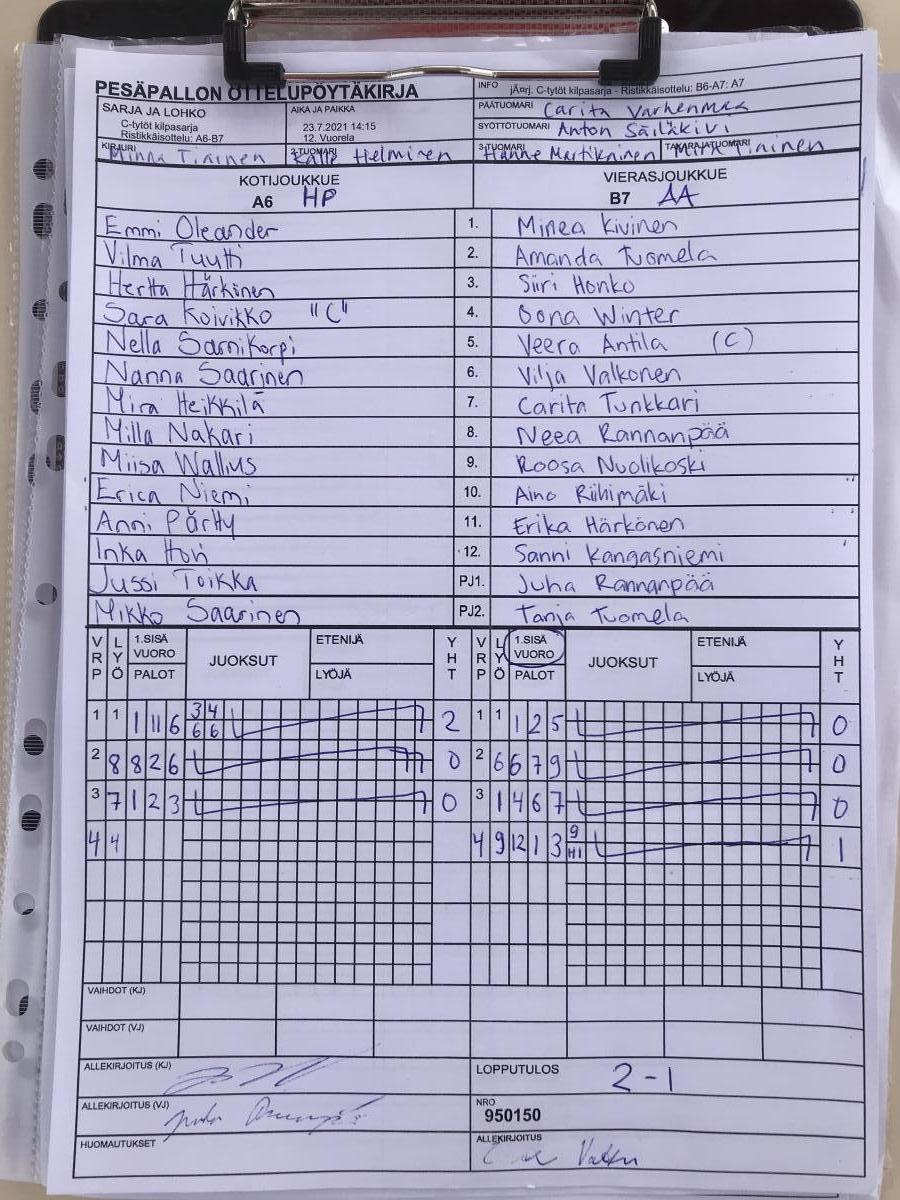 PESÄPALLON OTTELUPÖYTÄKIRJA
INFO jÃ¤rj. C-tytöt kilpasarja - Ristikkäisottelu: B6-A7: A7
SARJA JA LOHKO
C-tytöt kilpasarja
Ristikkäisottelu: A6-B7
AIKA JA PAIKKA
23.7.2021 14:15
12. Vuorela
PÄÄTUOMARI Carita Varhenmaa
SYÖTTÖTUOMARI Anton Säiläkivi
KIRJURI Minna Tininen
2-TUOMARI Kalle Helminen
3-TUOMARI Hanne Martikainen
TAKARAJATUOMARI Mira Tininen
KOTIJOUKKUE
A6 HP
VIERASJOUKKUE
B7 AA
Emmi Oleander 1. Minea Kivinen
Vilma Tuutti 2. Amanda Tuomela
Hertta Härkinen 3. Siiri Honko
Sara Koivikko "C" 4. Oona Winter
Nella Sarnikorpi 5. Veera Antila (C)
Nanna Saarinen 6. Vilja Valkonen
Mira Heikkilä 7. Carita Tunkkari
Milla Nakari 8. Neea Rannanpää
Miisa Wallius 9. Roosa Nuolikoski
Erica Niemi 10. Aino Riihimäki
Anni Pärtty 11. Erika Härkönen
Inka Hovi 12. Sanni Kangasniemi
Jussi Toikka PJ1. Juha Rannanpää
Mikko Saarinen PJ2. Tanja Tuomela
VRP LYÖ 1.SISÄ VUORO PALOT JUOKSUT ETENIJÄ LYÖJÄ YHT VRP LYÖ 1.SISÄ VUORO PALOT JUOKSUT ETENIJÄ LYÖJÄ YHT
1 1 1 11 6 3 4 2 1 1 1 2 5 0
6 6
2 8 8 2 6 0 2 6 6 7 9 0
3 7 1 2 3 0 3 1 4 6 7 0
4 4 4 9 12 1 3 9 1
VAIHDOT (KJ)
VAIHDOT (VJ)
ALLEKIRJOITUS (KJ)
LOPPUTULOS 2-1
ALLEKIRJOITUS (VJ)
NRO
950150
HUOMAUTUKSET
ALLEKIRJOITUS